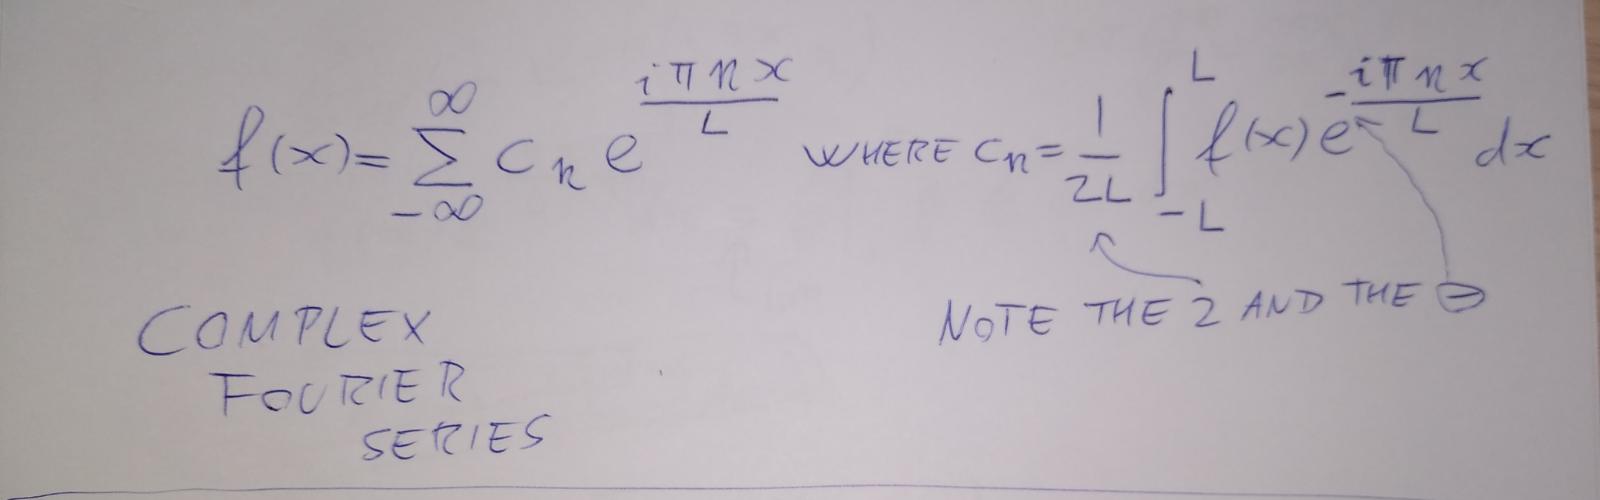 f(x) = ∑_{-∞}^{∞} c_n e^{\frac{iπnx}{L}} WHERE c_n = \frac{1}{2L} ∫_{-L}^{L} f(x) e^{-\frac{iπnx}{L}} dx
NOTE THE 2 AND THE ⊖
COMPLEX
FOURIER
SERIES